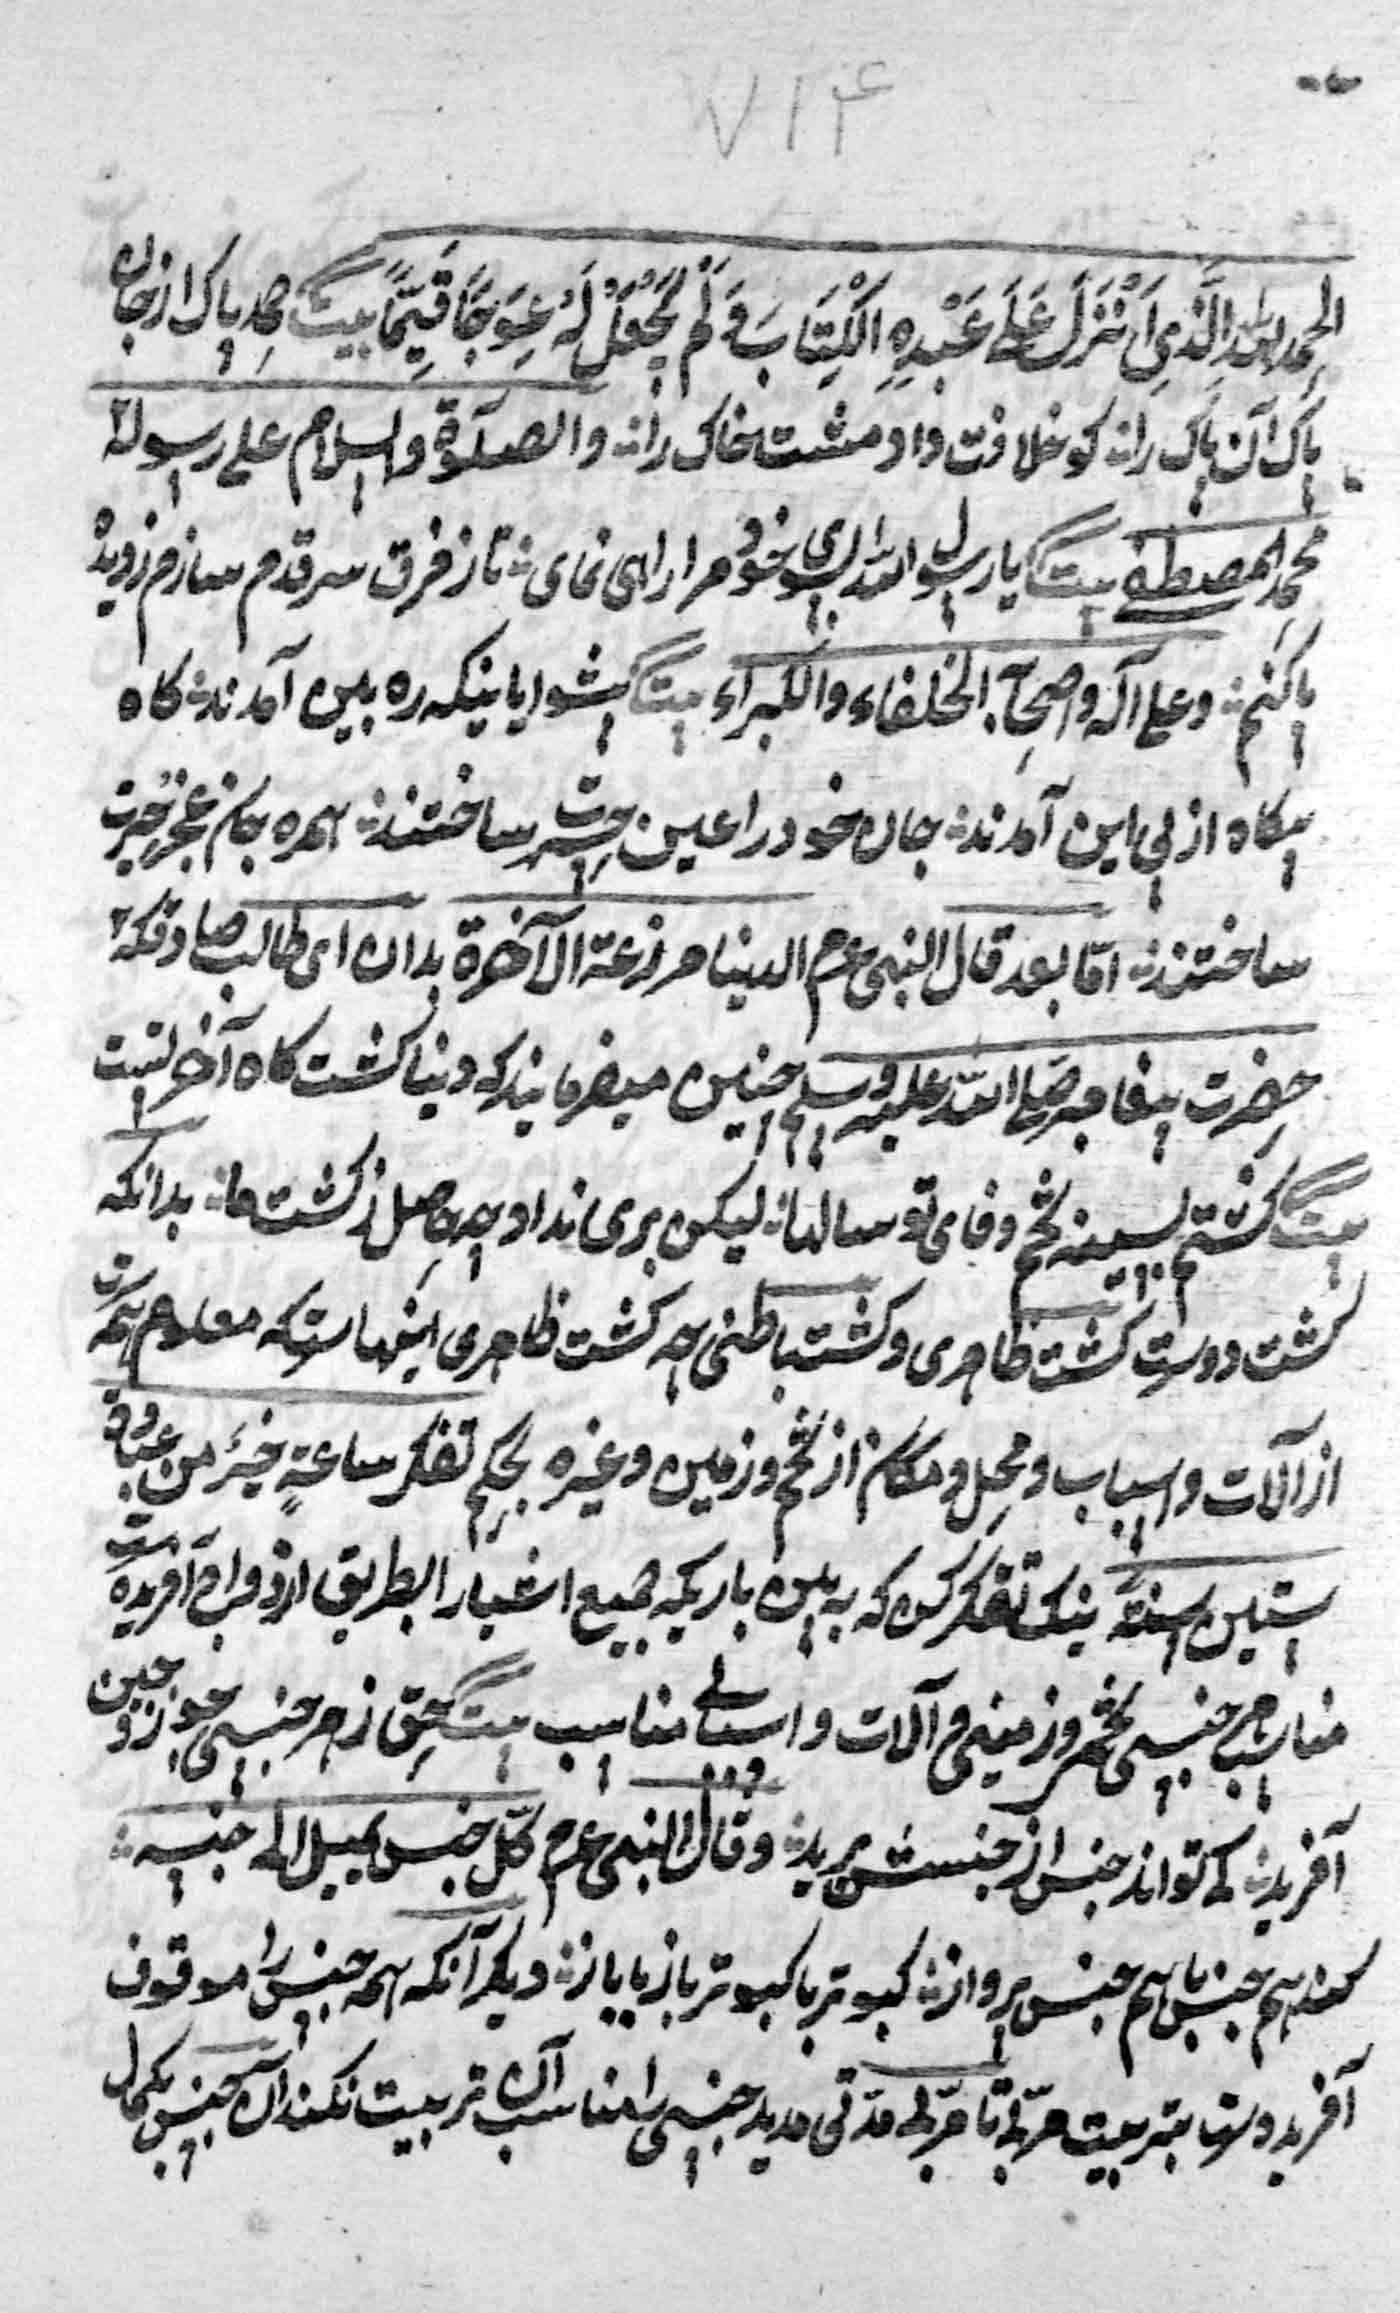 ۷۱۴
الحمد لله الَّذِی اَنْزَلَ عَلَی عَبْدِهِ الْکِتَابَ وَ لَمْ یَجْعَلْ لَهُ عِوَجًا قَیِّمًا بیت حمد پاک از جان
پاک آن پاک را؞ کو خلافت داد مشت خاک را؞ والصلوة والسلام علی رسوله
محمد المصطفی بیت یا رسول الله بسوی خود مرا راهی نمای؞ تا ز فرق سر قدم سازم ز دیده
پا کنم؞ و علی آله و اصحابه الخلفاء والکبراء بیت پیشوایانیکه ره بین آمدند؞ کاه
بیکاه از پی این آمدند؞ جان خود را عین حیرت ساختند؞ همره جان عجز حیرت
ساختند؞ امّا بعد قال النبی عم الدنیا مرزعة الآخرة بدان ای طالب صادق که
حضرت پیغامبر صلی الله علیه وسلم چنین میفرمایند که دنیا کشت کاه آخر تست
بیت کشتم بسینه تخم وفای تو سالها؞ لیکن بری نداد چه حاصل ز کشت ما؞ بدانکه
کشت دوست کشت ظاهری و کشت باطنی چه کشت ظاهری اینهاست که معلوم همه است
از آلات و اسباب و محل و مکان از تخم و زمین و غیره بحکم تفکر ساعةٍ خیرٌ من عبادة
ستین سنةً نیک تفکر کن که به بین باریکه جمیع اشیا را بطریق ازدواج آفریده است
مناسب هر جنسی تخم و زمینی و آلات و اسبابی مناسب بیت حق ز هر جنسی چو زوجین
آفرید؞ کی تواند جنس از جنسش برید؞ و قال النبی عم کلّ جنس یمیل الی جنسه؞
کند هم جنس با هم جنس پرواز؞ کبوتر با کبوتر باز با باز؞ دیکر آنکه همه جنس را موقوف
آفریدست بتربیت مربّی تا مربّی مدّتی مدید جنسی را مناسب آن تربیت نکند آن جنس بکمال